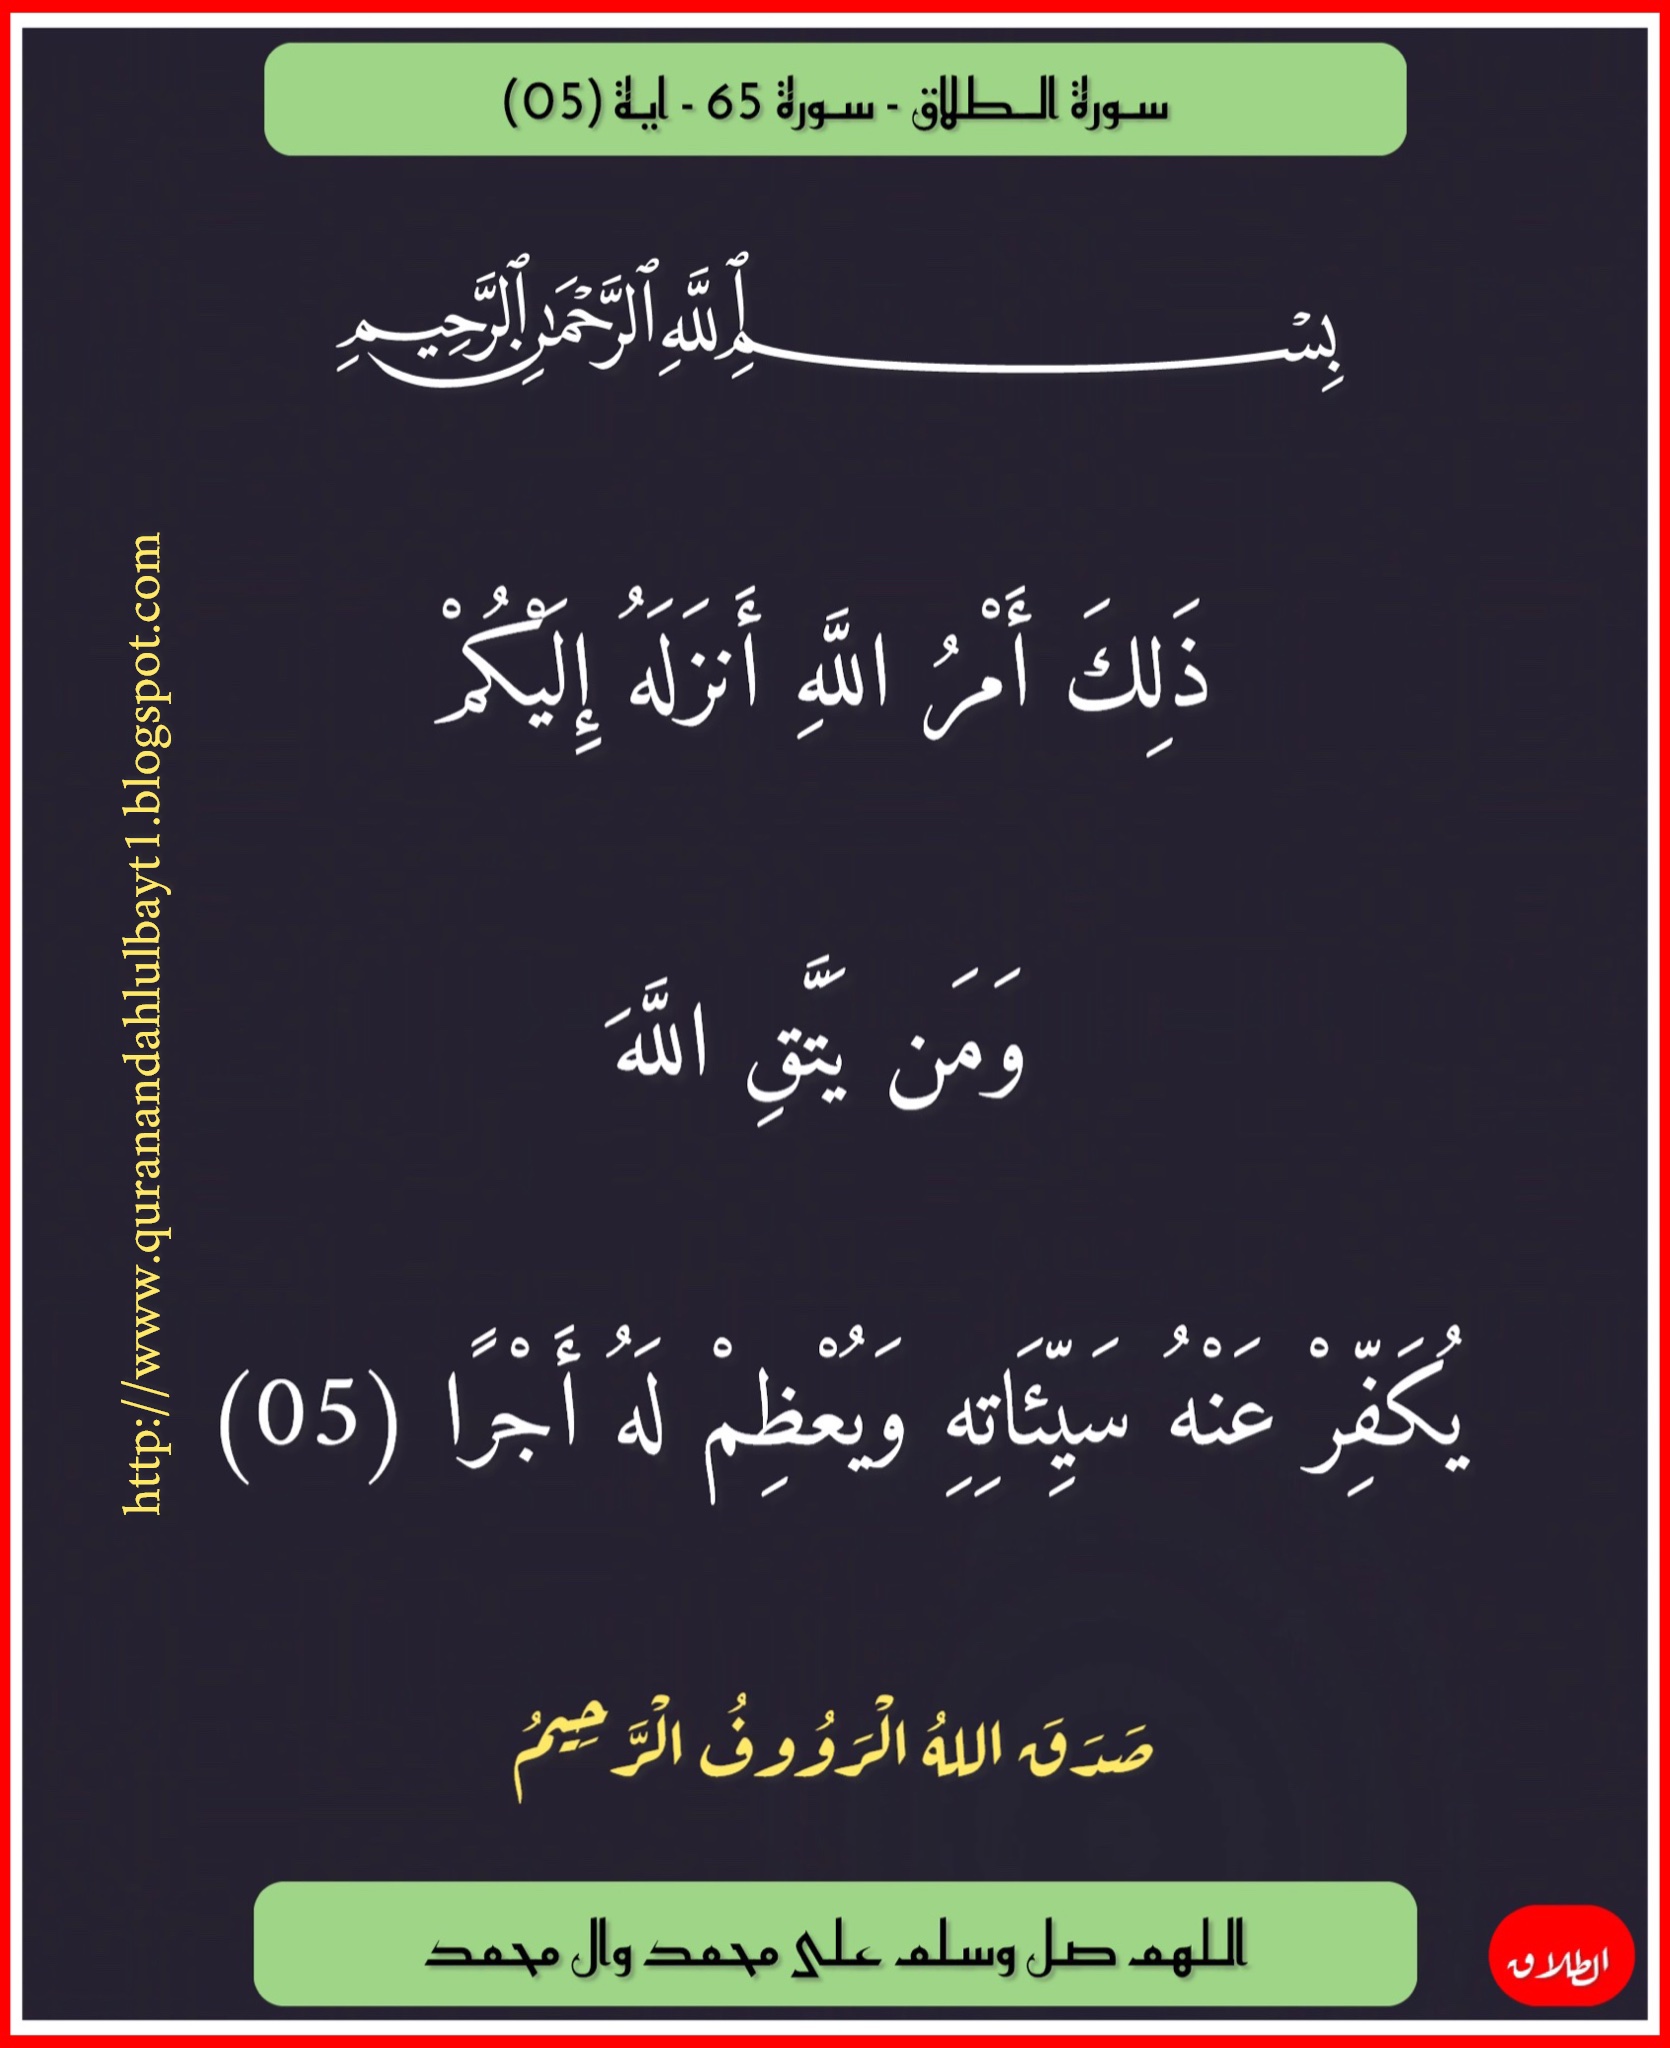 سورة الطلاق - سورة 65 - اية (05)
بِسْمِ ٱللَّهِ ٱلرَّحْمَٰنِ ٱلرَّحِيمِ
ذَلِكَ أَمْرُ اللَّهِ أَنزَلَهُ إِلَيْكُمْ
وَمَن يَتَّقِ اللَّهَ
يُكَفِّرْ عَنْهُ سَيِّئَاتِهِ وَيُعْظِمْ لَهُ أَجْرًا (05)
صَدَقَ اللهُ الْرَؤُوفُ الْرَّحِيمُ
اللهم صل وسلم على محمد وال محمد
الطلاق
http://www.quranandahlulbayt1.blogspot.com